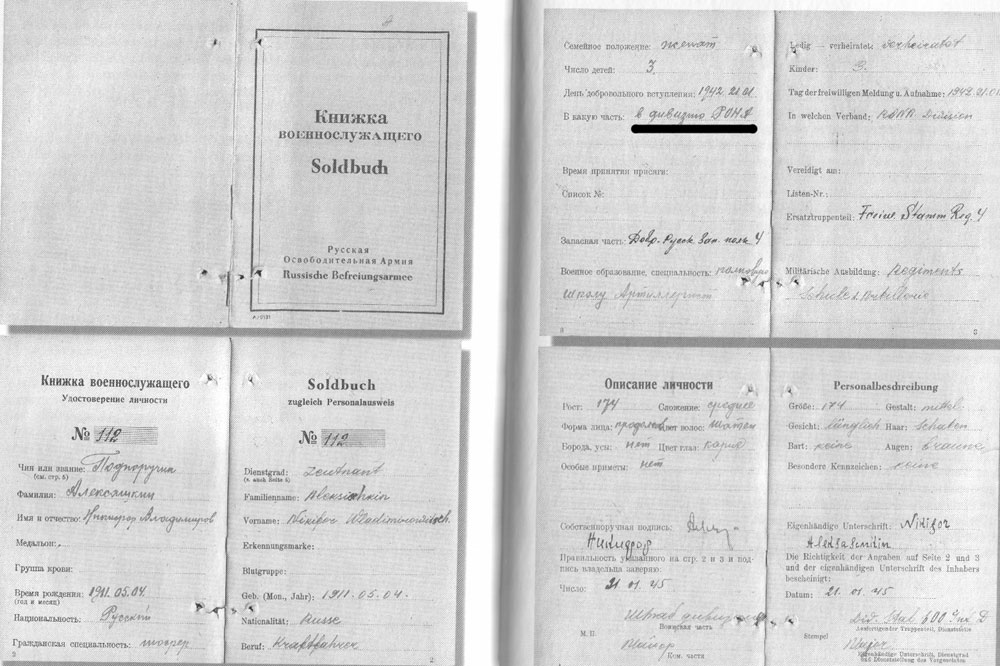 Книжка
военнослужащего
Soldbuch
Русская
Освободительная Армия
Russische Befreiungsarmee
Книжка военнослужащего
Удостоверение личности
№ 112
Чин или звание: Подпоручик
(см. стр. 5)
Фамилия: Алексяшкин
Имя и отчество: Никифор Владимиров
Медальон:
Группа крови:
Время рождения: 1911.05.04.
(год и месяц)
Национальность: Русский
Гражданская специальность: шофер
3
Soldbuch
zugleich Personalausweis
№ 112
Dienstgrad: Leutnant
(s. auch Seite 5)
Familienname:
Vorname: Nikifor Wladimirowitsch
Erkennungsmarke:
Blutgruppe:
Geb. (Mon., Jahr): 1911.05.04.
Nationalität: Russe
Beruf: Kraftfahrer
2
Семейное положение: женат
Число детей: 3
День добровольного вступления: 1942 21.01
В какую часть: в дивизию РОНА
Время принятия присяги:
Список №:
Запасная часть: Добр. Русск. Зап. полк 4
Военное образование, специальность: полковую
школу Артиллерист
Ledig – verheiratet: verheiratet
Kinder: 3.
Tag der freiwilligen Meldung u. Aufnahme: 1942.21.01
In welchen Verband: Division
Vereidigt am:
Listen-Nr.:
Ersatztruppenteil: Freiw. Stamm Reg. 4
Militärische Ausbildung: Regiments
Schule
Описание личности
Рост: 174 Сложение: среднее
Форма лица: Цвет волос: шатен
Борода, усы: нет Цвет глаз: карие
Особые приметы: нет
Собственноручная подпись:
Никифор
Правильность указанного на стр. 2 и 3 и под-
пись владельца заверяю:
Число: 21 01 45
Штаб дивизии
Воинская часть
М. П.
Ком. части
Personalbeschreibung
Größe: 174 Gestalt: mittel.
Gesicht: länglich Haar:
Bart: keine Augen: braune
Besondere Kennzeichen: keine
Eigenhändige Unterschrift: Nikifor
Die Richtigkeit der Angaben auf Seite 2 und 3
und der eigenhändigen Unterschrift des Inhabers
bescheinigt:
Datum: 21. 01. 45
Div. Stab 600 Inf. D
Ausfertigender Truppenteil, Dienststelle
Stempel
Eigenhändige Unterschrift, Dienstgrad
und Dienststelle des Vorgesetzten